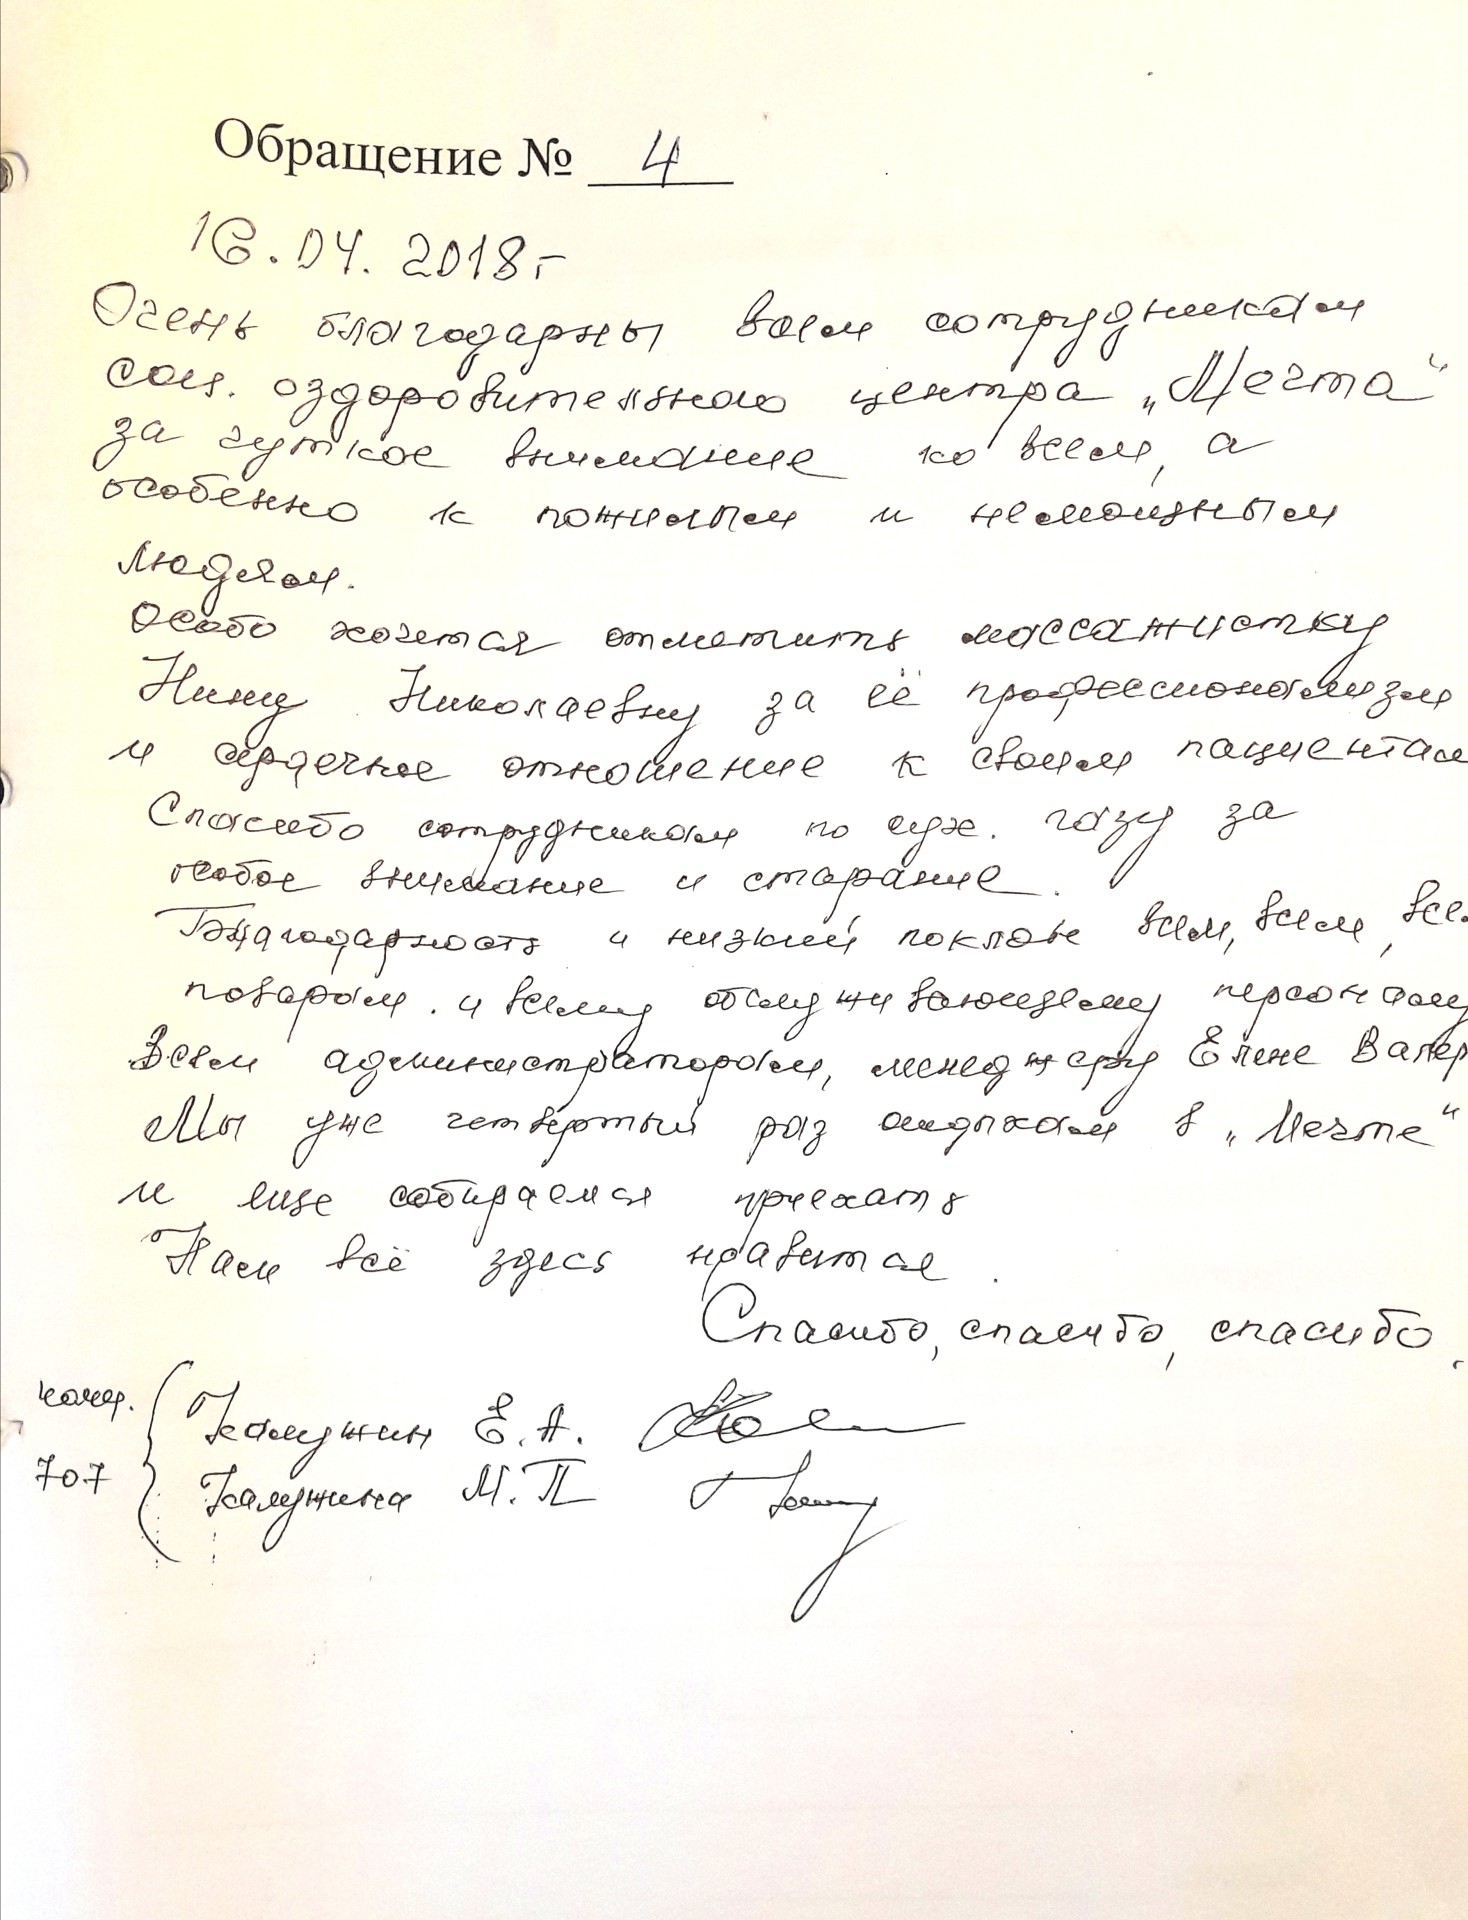 Обращение № 4
16.04.2018г
Очень благодарны всем сотрудникам
соц. оздоровительного центра „Мечта“
за чуткое внимание ко всем, а
особенно к пожилым и немощным
людям.
Особо хочется отметить массажистку
Нину Николаевну за её профессионализм
и сердечное отношение к своим пациентам
Спасибо сотрудникам по сух. газу за
особое внимание и старание.
Благодарность и низкий поклон всем, всем, все
поварам. и всему обслуживающему персоналу
Всем администраторам, менеджеру Елене Валер
Мы уже четвертый раз отдыхаем в „Мечте“
и еще собираемся приехать
Нам всё здесь нравится.
Спасибо, спасибо, спасибо.
комн. Калужин Е.А.
707 Калужина М.П